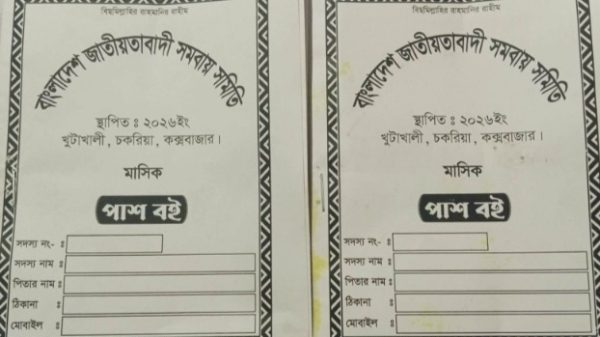 বিছমিল্লাহির রাহমানির রাহীম
বাংলাদেশ জাতীয়তাবাদী সমবায় সমিতি
স্থাপিত ঃ ২০২৬ইং
খুটাখালী, চকরিয়া, কক্সবাজার।
মাসিক
পাশ বই
সদস্য নং- ঃ
সদস্য নাম ঃ
পিতার নাম ঃ
ঠিকানা ঃ
মোবাইল ঃ
বিছমিল্লাহির রাহমানির রাহীম
বাংলাদেশ জাতীয়তাবাদী সমবায় সমিতি
স্থাপিত ঃ ২০২৬ইং
খুটাখালী, চকরিয়া, কক্সবাজার।
মাসিক
পাশ বই
সদস্য নং- ঃ
সদস্য নাম ঃ
পিতার নাম ঃ
ঠিকানা ঃ
মোবাইল ঃ